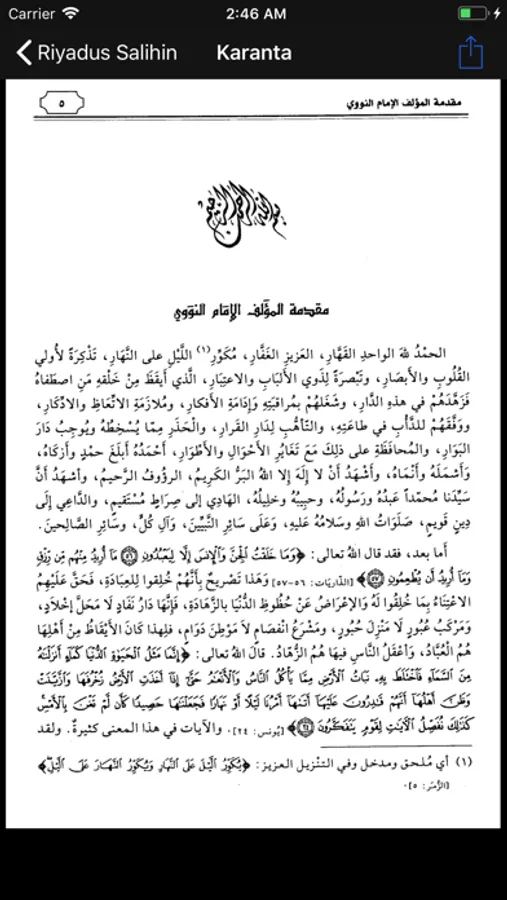 Carrier 2:46 AM
Riyadus Salihin Karanta
مقدمة المؤلف الإمام النووي ٥
بسم الله الرحمن الرحيم
مقدمة المؤلف الإمام النووي
الحمْدُ للهِ الواحدِ القَهَّارِ، العَزيزِ الغَفَّارِ، مُكَوِّرِ(١) اللَّيْلِ على النَّهَارِ، تَذْكِرَةً لأُولي
القُلُوبِ والأَبصَارِ، وتَبْصرَةً لِذَوي الأَلبَابِ والاعتِبَارِ، الَّذي أَيقَظَ مِنْ خَلْقهِ مَنِ اصطَفاهُ
فَزَهَّدَهُمْ في هذهِ الدَّارِ، وشَغَلهُمْ بمُراقبَتِهِ وَإِدَامَةِ الأَفكارِ، ومُلازَمَةِ الاتِّعَاظِ والادِّكَارِ،
ووَفَّقَهُمْ للدَّأْبِ في طاعَتِهِ، والتّأهُّبِ لِدَارِ القَرارِ، والْحَذَرِ مِمّا يُسْخِطُهُ ويُوجِبُ دَارَ
البَوَارِ، والمُحافَظَةِ على ذلِكَ مَعَ تَغَايُرِ الأَحْوَالِ والأَطْوَارِ، أَحْمَدُهُ أَبلَغَ حمْدٍ وأَزكَاهُ،
وَأَشمَلَهُ وأَنْمَاهُ، وأَشْهَدُ أَنْ لا إِلَهَ إِلا اللهُ البَرُّ الكَرِيمُ، الرؤُوفُ الرَّحيمُ، وأَشهَدُ أَنَّ
سَيِّدَنا مُحمّداً عَبدُهُ ورَسُولُهُ، وحبِيبُهُ وخلِيلُهُ، الهَادِي إلى صِرَاطٍ مُسْتَقِيمٍ، والدَّاعِي إِلَى
دِينٍ قَويمٍ، صَلَوَاتُ اللهِ وسَلامُهُ عَليهِ، وَعَلَى سَائِرِ النَّبيِّينَ، وَآلِ كُلٍّ، وسَائِرِ الصَّالِحينَ.
أما بعد، فقد قال اللهُ تعالى: ﴿وَمَا خَلَقْتُ الْجِنَّ وَالْإِنسَ إِلَّا لِيَعْبُدُونِ ۝٥٦ مَا أُرِيدُ مِنْهُم مِّن رِّزْقٍ
وَمَا أُرِيدُ أَن يُطْعِمُونِ ۝٥٧﴾ [الذّاريَات: ٥٦-٥٧] وَهَذا تَصْريحٌ بِأَنَّهُمْ خُلِقوا لِلعِبَادَةِ، فَحَقَّ عَلَيْهِمُ
الاعْتِنَاءُ بِمَا خُلِقُوا لَهُ وَالإِعْرَاضُ عَنْ حُظُوظِ الدُّنْيَا بالزَّهَادَةِ، فَإِنَّهَا دَارُ نَفَادٍ لَا مَحَلُّ إِخْلَادٍ،
وَمَرْكَبُ عُبُورٍ لَا مَنْزِلُ حُبُورٍ، ومَشْرَعُ انْفصَامٍ لَا مَوْطِنُ دَوَامٍ، فلِهذا كَانَ الأَيْقَاظُ مِنْ أَهْلِهَا
هُمُ العُبَّادُ، وَأَعْقَلُ النَّاسِ فيهَا هُمُ الزُّهَّادُ. قالَ اللهُ تعالى: ﴿إِنَّمَا مَثَلُ الْحَيَوٰةِ الدُّنْيَا كَمَآءٍ أَنزَلْنَٰهُ
مِنَ السَّمَآءِ فَاخْتَلَطَ بِهِ نَبَاتُ الْأَرْضِ مِمَّا يَأْكُلُ النَّاسُ وَالْأَنْعَٰمُ حَتَّىٰٓ إِذَآ أَخَذَتِ الْأَرْضُ زُخْرُفَهَا وَازَّيَّنَتْ
وَظَنَّ أَهْلُهَآ أَنَّهُمْ قَٰدِرُونَ عَلَيْهَآ أَتَىٰهَآ أَمْرُنَا لَيْلًا أَوْ نَهَارًا فَجَعَلْنَٰهَا حَصِيدًا كَأَن لَّمْ تَغْنَ بِالْأَمْسِ
كَذَٰلِكَ نُفَصِّلُ الْآيَٰتِ لِقَوْمٍ يَتَفَكَّرُونَ ۝٢٤﴾ [يُونس: ٢٤]. والآيات في هذا المعنى كثيرةٌ. ولقد
(١) أي مُلحق ومدخل وفي التنزيل العزيز: ﴿يُكَوِّرُ الَّيْلَ عَلَى النَّهَارِ وَيُكَوِّرُ النَّهَارَ عَلَى الَّيْلِ﴾
[الزُّمَر: ٥].